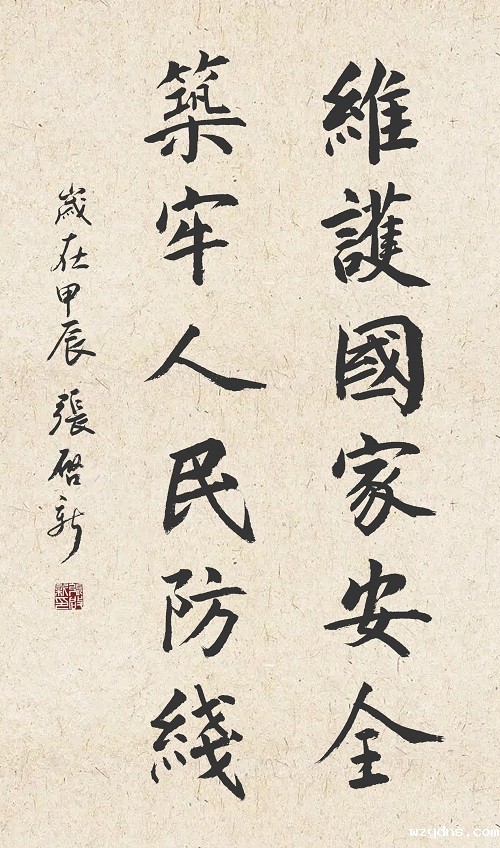 維護國家安全
築牢人民防綫
歲在甲辰 張啓新
wzgdns.com